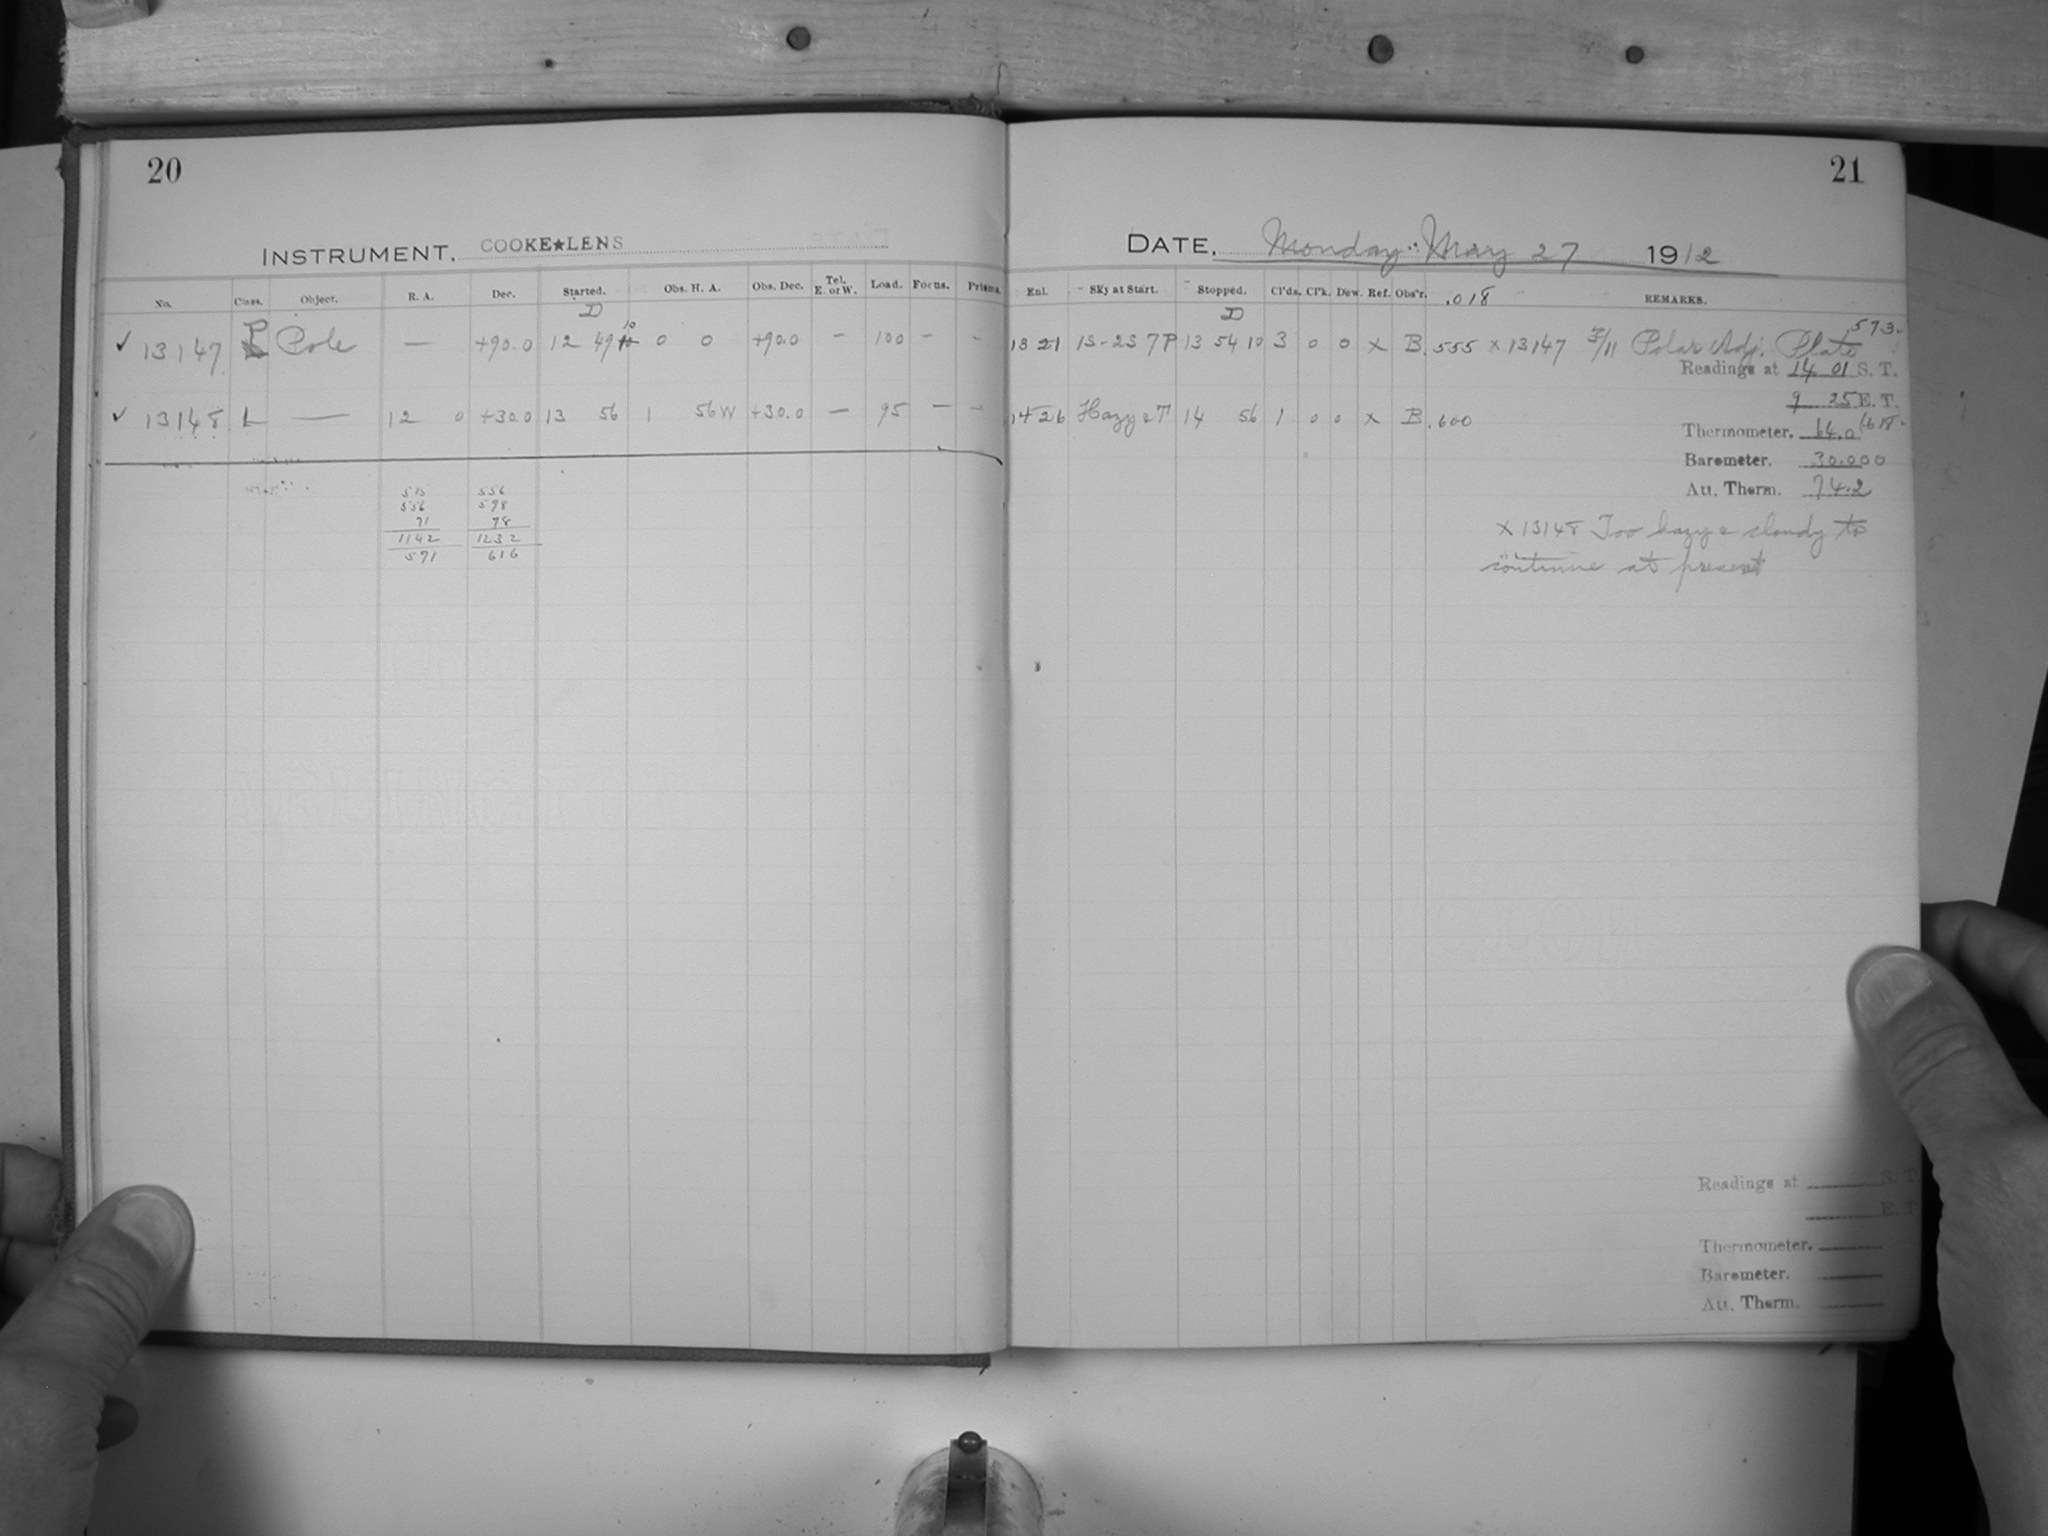 20
INSTRUMENT. COOKE★LENS
No. Class. Object. R. A. Dec. Started. Obs. H. A. Obs. Dec. Tel. E. or W. Load. Focus. Prisms.
D
✓ 13147 Pole — +90.0 12 49 10 0 0 +90.0 — 100 - -
✓ 13148 L — 12 0 +30.0 13 56 1 56W +30.0 — 95 — -
513 556
556 598
71 78
1142 1232
571 616
21
DATE, Monday: May 27 1912
Enl. Sky at Start. Stopped. Cl'ds. Cl'k. Dew. Ref. Obs'r. .018 REMARKS.
D
1321 1S-2S 7P 13 54 10 3 0 0 x B .555 x 13147 3/11 Polar Adj. Plate .573
Readings at 14 01 S. T.
9 25 E. T.
1426 Hazy & T 14 56 1 0 0 x B .600
Thermometer. 64.0 .618
Barometer. 30.000
Att. Therm. 74.2
x 13148 Too hazy & cloudy to
continue at present
Readings at S. T.
E. T.
Thermometer.
Barometer.
Att. Therm.